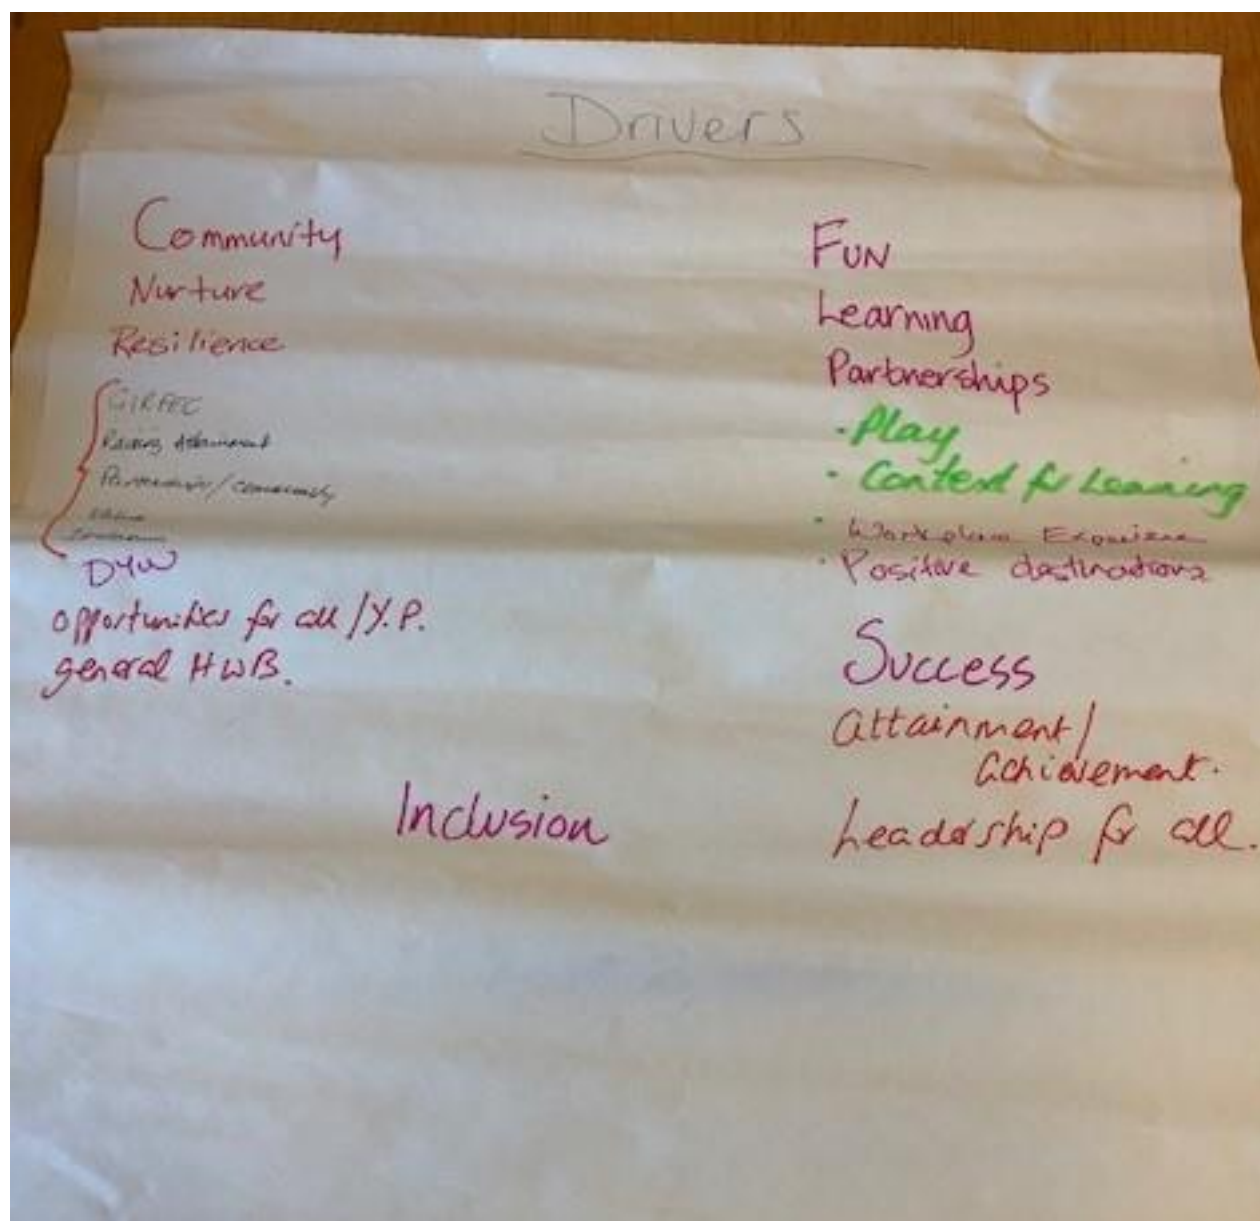 Drivers
Community
Nurture
Resilience
GIRFEC
Raising Attainment
Partnership/Community
DYW
opportunities for all/Y.P.
general HWB.
Inclusion
FUN
Learning
Partnerships
· Play
· Context for Learning
· Workplace Experience
· Positive destinations
Success
attainment/
achievement.
Leadership for all.